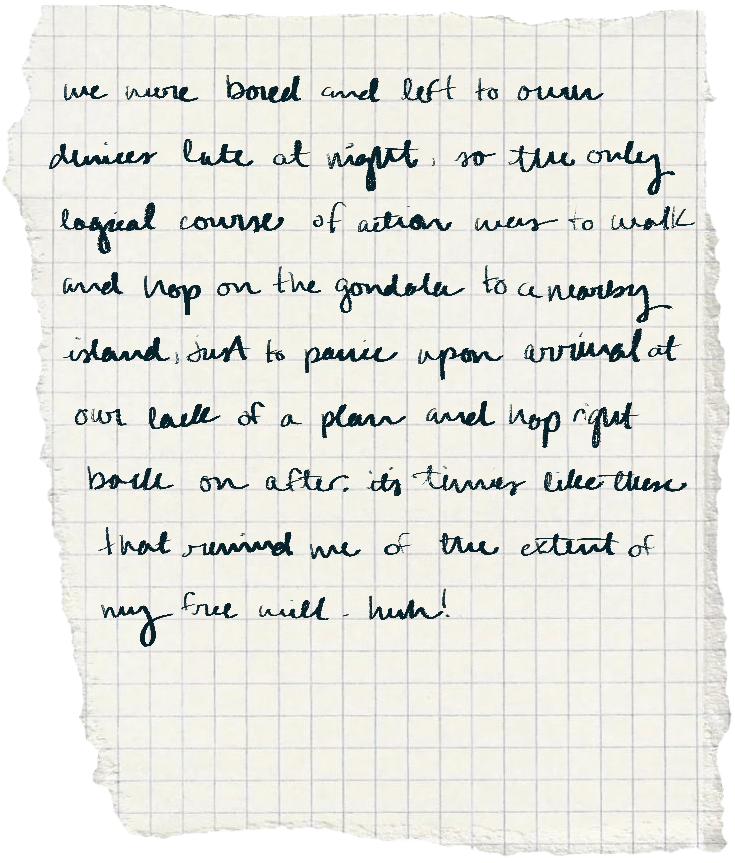 we were bored and left to our
devices late at night, so the only
logical course of action was to walk
and hop on the gondola to a nearby
island, just to panic upon arrival at
our lack of a plan and hop right
back on after. it's times like these
that remind me of the extent of
my free will - huh!